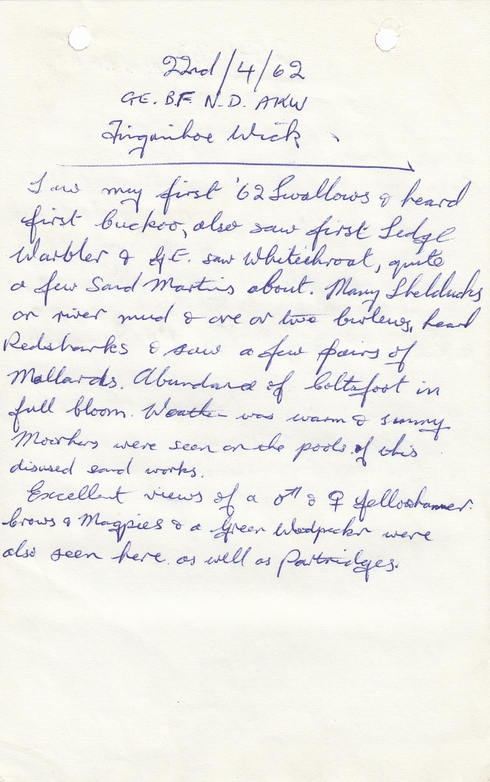 22nd/4/62
GE. B.F. N.D. AKW
Fingrinhoe Wick
Saw my first '62 Swallows & heard
first Cuckoo, also saw first Sedge
Warbler & G.E. saw Whitethroat, quite
a few Sand Martins about. Many Shelducks
on river mud & one or two Curlews, heard
Redshanks & saw a few pairs of
Mallards. Abundance of Coltsfoot in
full bloom. Weather was warm & sunny
Moorhens were seen on the pools of this
disused sand works.
Excellent views of a ♂ & ♀ Yellowhammer.
Crows & Magpies & a Green Woodpecker were
also seen here. as well as Partridges.